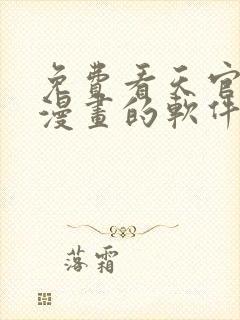 免費看天官
漫畫的軟件
落霜